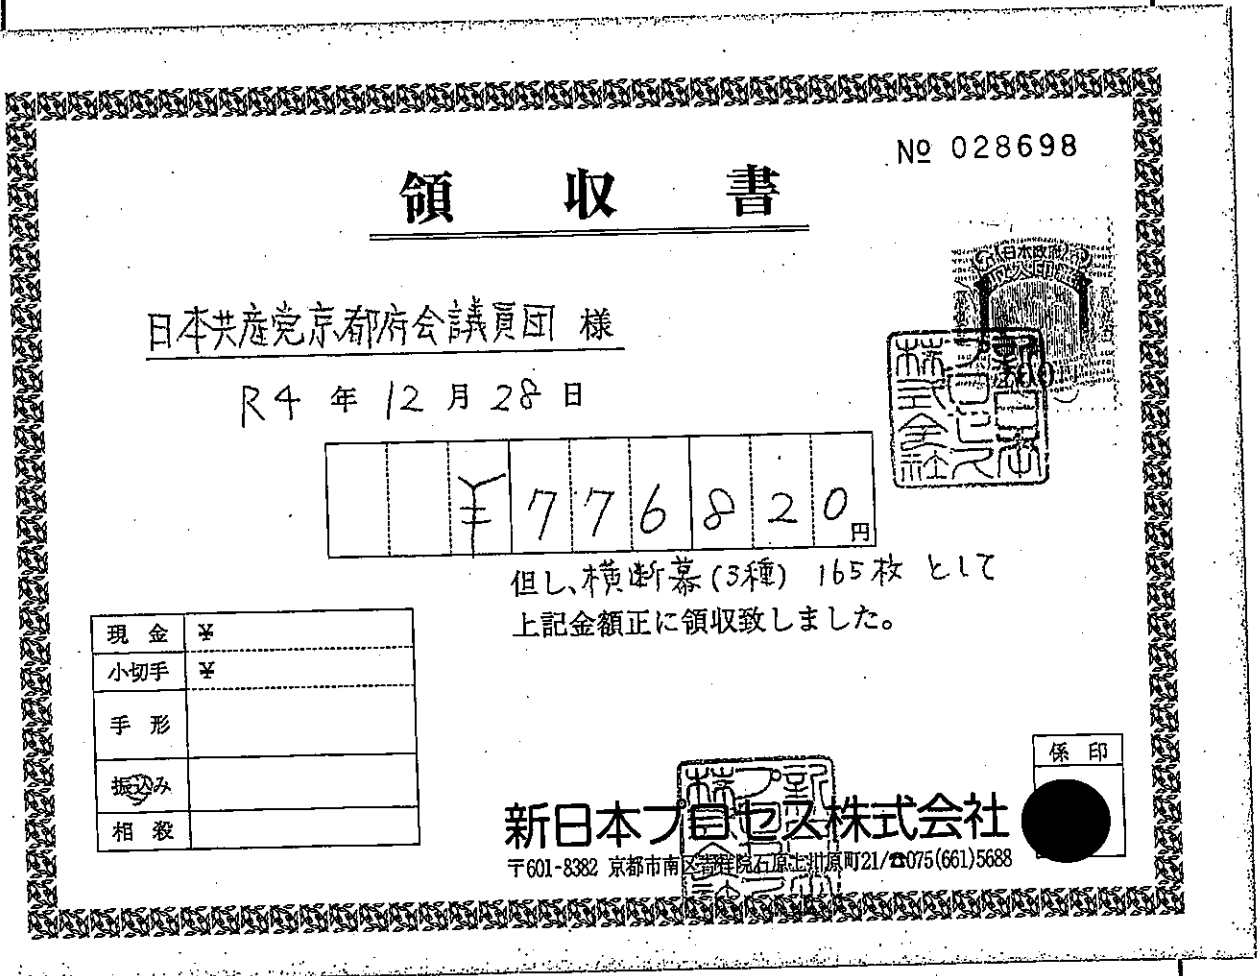 № 028698
領収書
日本政府
収入印紙
200
日本共産党京都府会議員団 様
R4 年 12 月 28 日
新日本プロセス株式会社
¥776820円
但し、横断幕(3種) 165枚 として
上記金額正に領収致しました。
現金 ¥
小切手 ¥
手形
振込み
相殺
係印
新日本プロセス株式会社
〒601-8382 京都市南区吉祥院石原上川原町21/☎075(661)5688